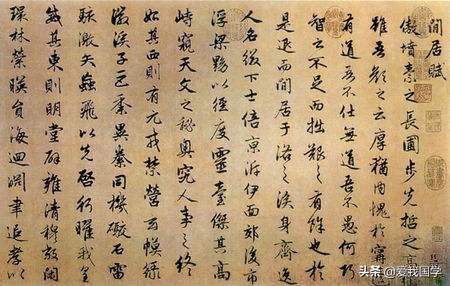 閒居賦
傲墳素之長圃步先哲之高
雖吾顏之云厚猶內愧於甯蘧
有道吾不仕無道吾不愚何巧
智之不足而拙艱之有餘也於
是退而閒居于洛之涘身齊逸
人名綴下士倍京泝伊面郊後市
浮梁黝以徑度靈臺傑其高
峙窺天文之秘奧究人事之終
始其西則有元戎禁營玄幙綠
徽溪子巨黍異絭同機礮石雷
駭激矢蝱飛以先啓行曜我皇
威其東則明堂辟雍清穆敞閑
環林縈暎員海迴淵聿追孝以
头条 @爱我国学